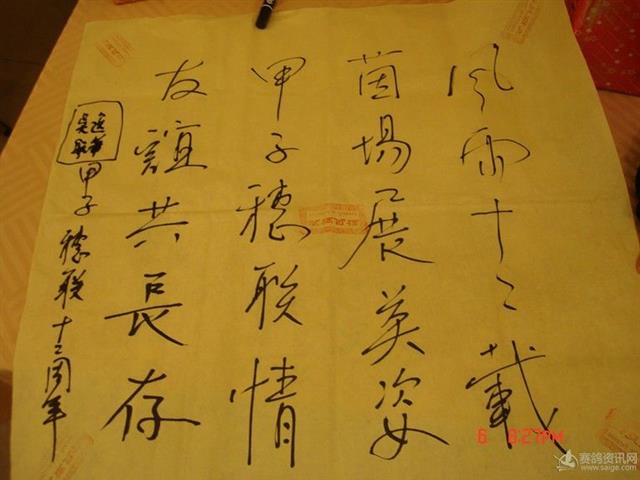 风雨十二载
茵場展英姿
甲子穗联情
友誼共長存
甲子穗联十二周年
6 3:27PM
赛鸽资讯网
www.saige.com